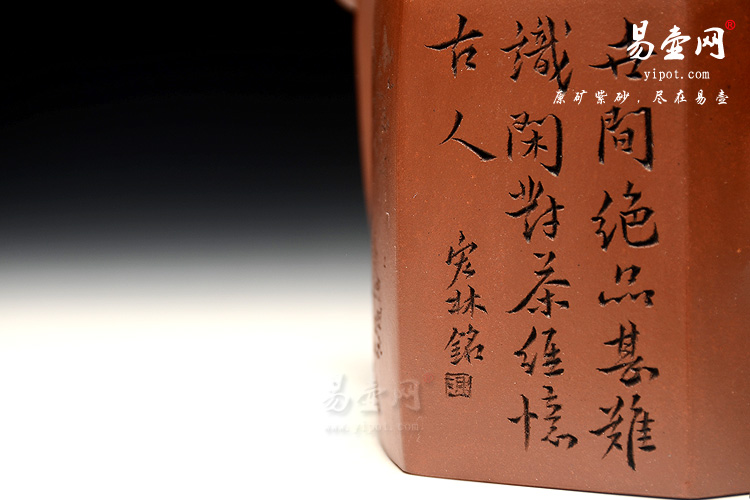 世間绝品甚難
識閑對茶経憶
古人
宏林銘
易壶网®
yipot.com
原矿紫砂，尽在易壶
易壶网
www.yipot.com